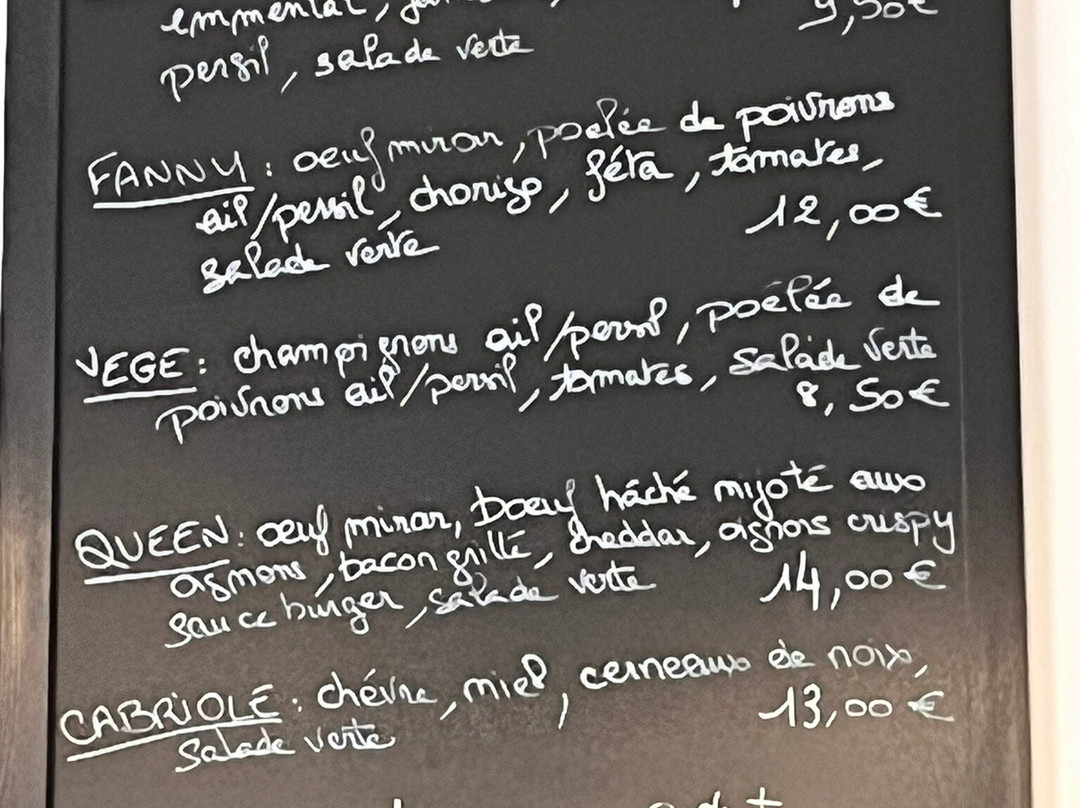 emmental,
9,50€
persil, salade verte
FANNY: oeuf miroir, poêlée de poivrons
ail/persil, chorizo, féta, tomates,
salade verte 12,00€
VEGE: champignons ail/persil, poêlée de
poivrons ail/persil, tomates, salade verte
8,50€
QUEEN: oeuf miroir, boeuf hâché mijoté aux
oignons, bacon grillé, cheddar, oignons crispy
sauce burger, salade verte 14,00€
CABRIOLE: chévre, miel, cerneaux de noix,
salade verte 13,00€